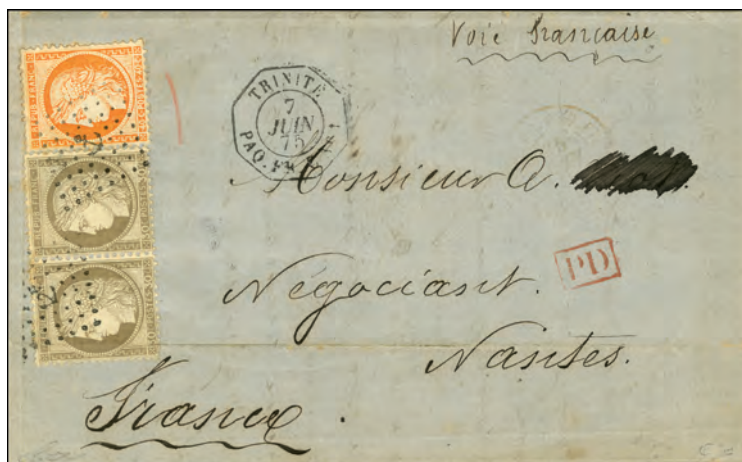 Voie française
REPUB · FRANC ·
TRINITÉ
7
JUIN
75
PAQ. FR.
Monsieur A.
Négociant.
PD
Nantes.
France.